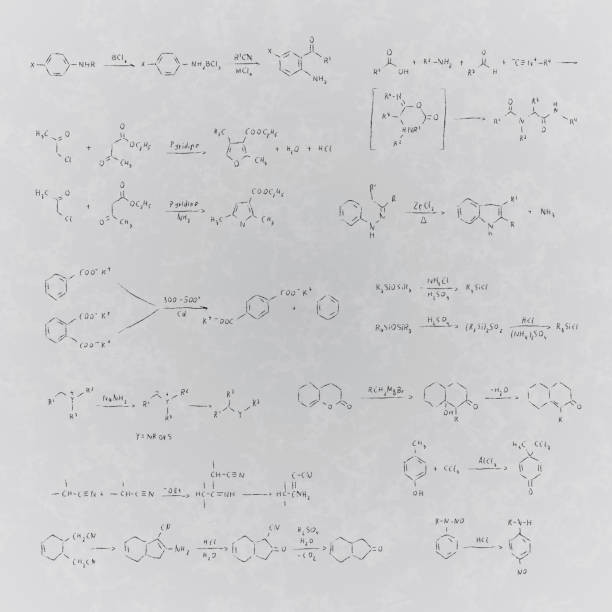 X NHR BCl₃ X NH₂BCl₃ R¹CN AlCl₃ X O R¹ NH₂
R¹ O OH + R²-NH₂ + R³ O H + ⁻C≡N⁺-R⁴
R⁴-N R³ O O HNR¹ R² R¹ O N R² R³ O H N R⁴
H₃C O Cl + OC₂H₅ O CH₃ Pyridine H₃C COOC₂H₅ O CH₃ + H₂O + HCl
H₃C O Cl + OC₂H₅ O Pyridine NH₃ H₃C COOC₂H₅ N CH₃
R¹ R N N H ZnCl₂ Δ R¹ R N H + NH₃
COO⁻ K⁺
COO⁻ K⁺
COO⁻ K⁺
300-500° Cd K⁺ ⁻OOC COO⁻ K⁺ +
R₃SiOSiR₃ NH₄Cl H₂SO₄ R₃SiCl
R₃SiOSiR₃ H₂SO₄ (R₃Si)₂SO₄ HCl (NH₄)₂SO₄ R₃SiCl
R² R³ NaNH₂ R² R³ R² Y R³
Y=NR OR S
O O RCH₂MgBr OH R O -H₂O R O
CH₃ OH + CCl₄ AlCl₃ H₃C CCl₃ O
-CH-C≡N + -CH-C≡N ⁻OEt -CH-C≡N HC-C=NH C-CN HC-C NH₂
CH₂CN CH₂CN CN NH₂ HCl H₂O CN O H₂SO₄ H₂O -CO₂ O
R-N-NO HCl R-N-H NO